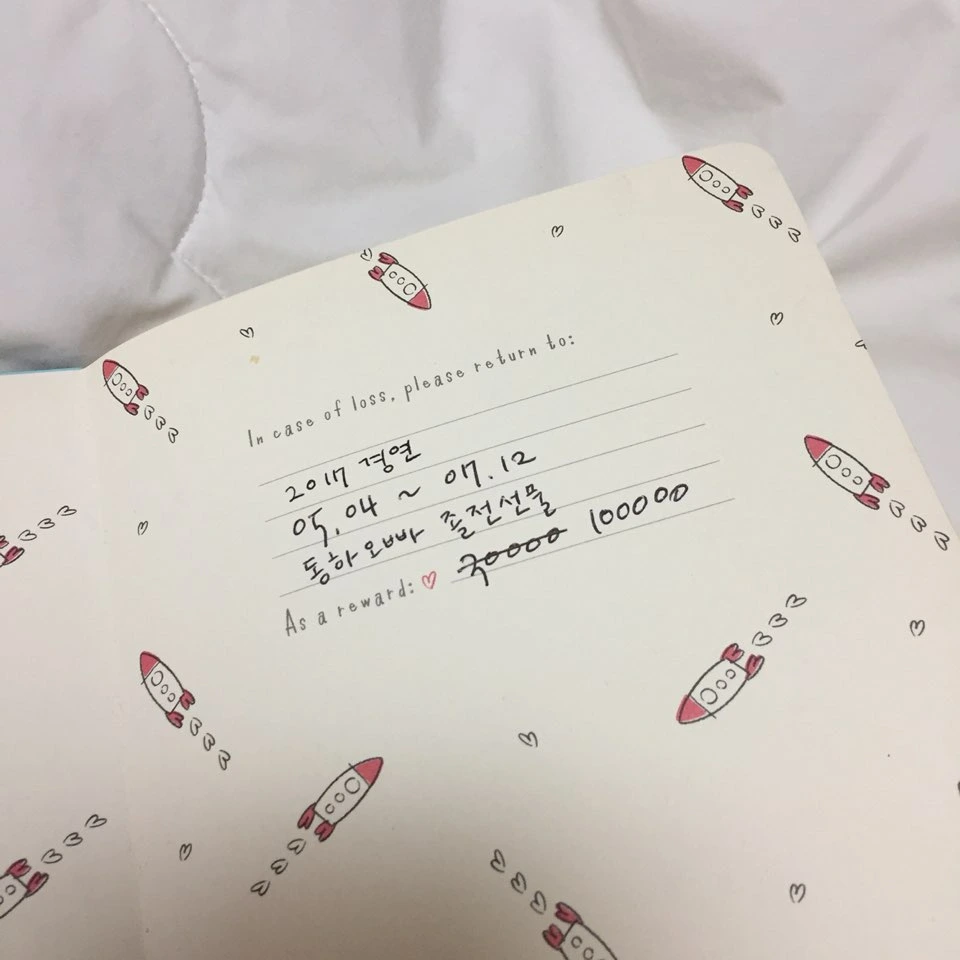 In case of loss, please return to:
2017 경연
05.04 ~ 07.12
동하오빠 졸전선물
As a reward: ♡ 100000